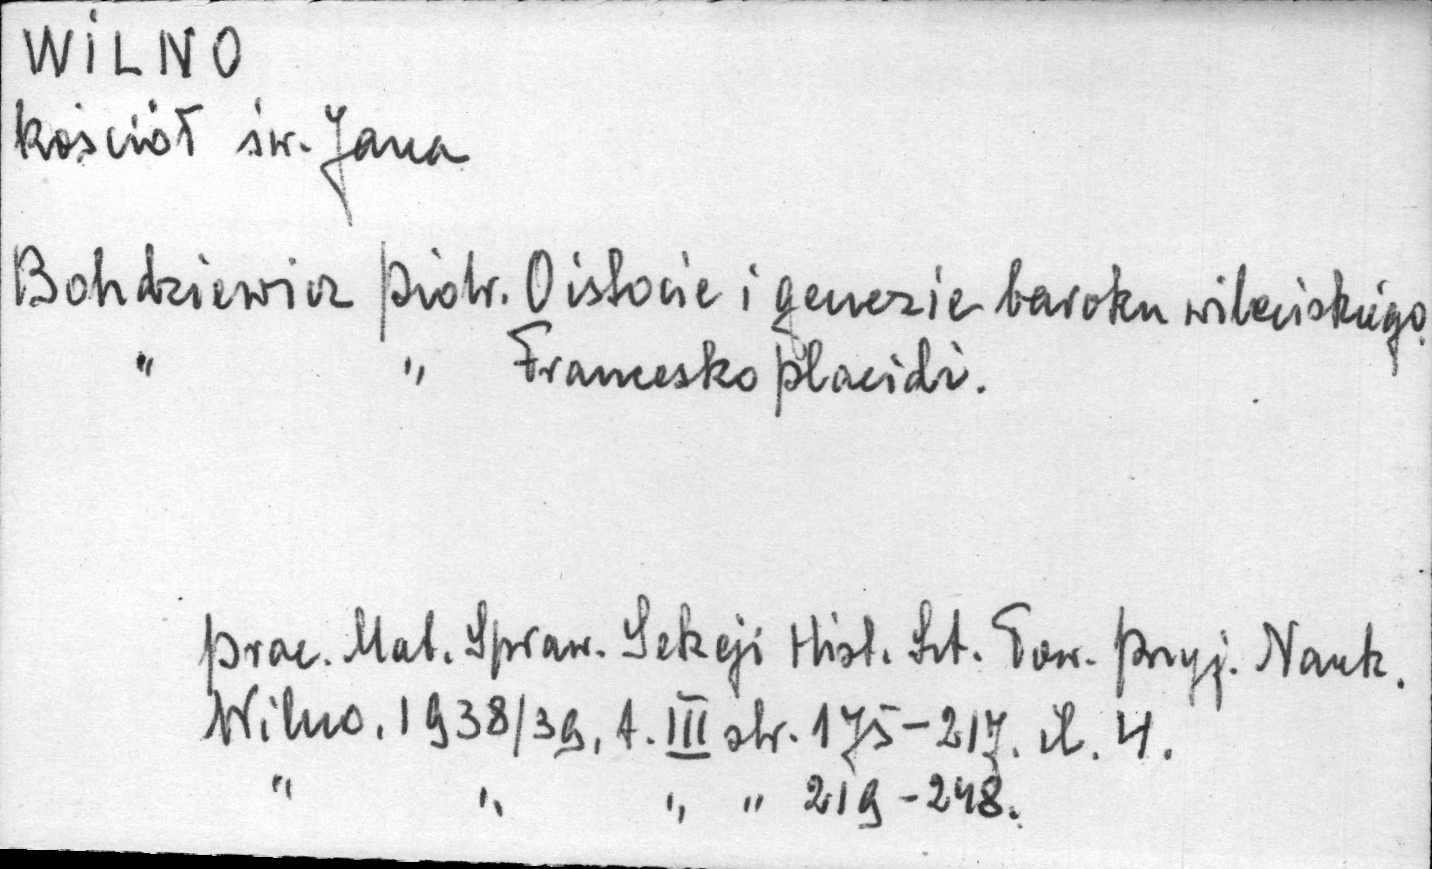 WILNO
kościół św. Jana
Bohdziewicz Piotr. O istocie i genezie baroku wileńskiego.
" " Francesko Placidi.
Prac. Mat. Spraw. Sekcji Hist. Szt. Tow. Przyj. Nauk.
Wilno. 1938/39, t. III str. 175-217. il. 4.
" " " " 219-248.